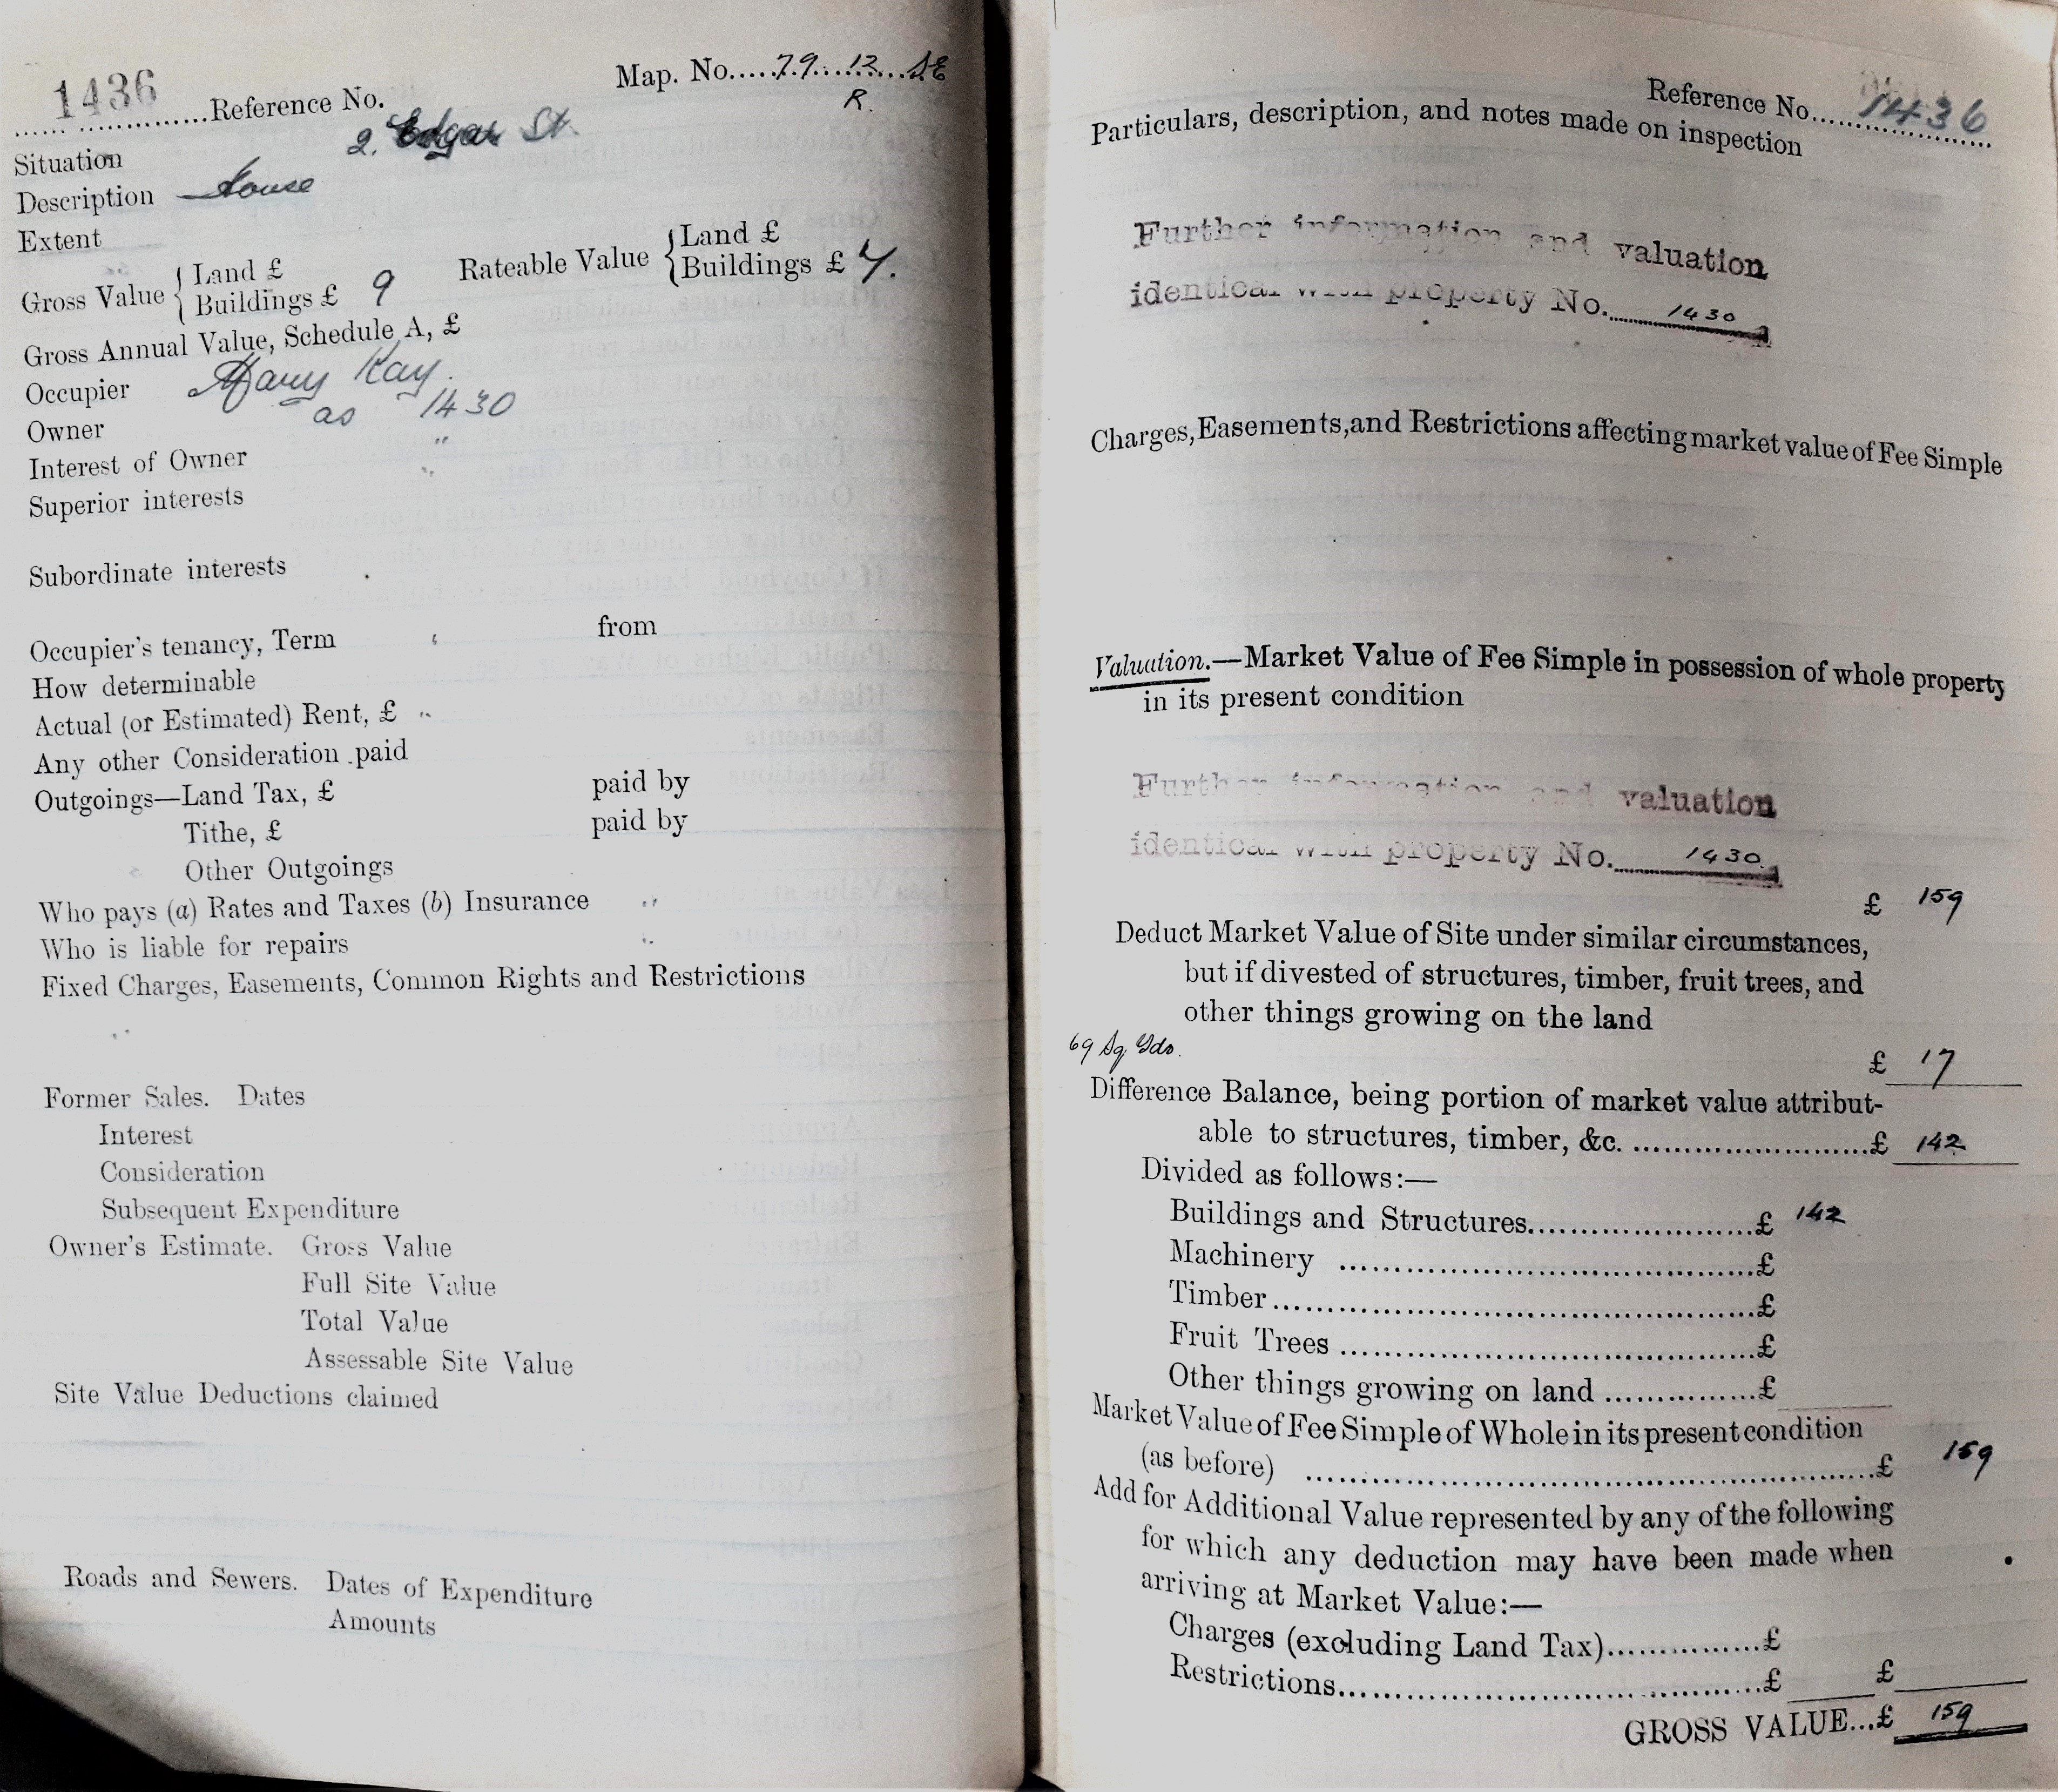 1436
Map. No.....79...12...SE
R.
.................Reference No.
Situation 2. Edgar St.
Description House
Extent
Gross Value { Land £
Buildings £ 9
Rateable Value { Land £
Buildings £ 7.
Gross Annual Value, Schedule A, £
Occupier Mary Kay.
Owner as 1430
Interest of Owner "
Superior interests "
Subordinate interests
Occupier's tenancy, Term " from
How determinable
Actual (or Estimated) Rent, £ "
Any other Consideration paid
Outgoings—Land Tax, £ paid by
Tithe, £ paid by
Other Outgoings
Who pays (a) Rates and Taxes (b) Insurance "
Who is liable for repairs "
Fixed Charges, Easements, Common Rights and Restrictions
"
Former Sales. Dates
Interest
Consideration
Subsequent Expenditure
Owner's Estimate. Gross Value
Full Site Value
Total Value
Assessable Site Value
Site Value Deductions claimed
Roads and Sewers. Dates of Expenditure
Amounts
Reference No. 1436
Particulars, description, and notes made on inspection
Further information and valuation
identical with property No. 1430
Charges, Easements, and Restrictions affecting market value of Fee Simple
Valuation.—Market Value of Fee Simple in possession of whole property
in its present condition
Further information and valuation
identical with property No. 1430
£ 159
Deduct Market Value of Site under similar circumstances,
but if divested of structures, timber, fruit trees, and
other things growing on the land
69 Sq. Yds.
£ 17
Difference Balance, being portion of market value attribut-
able to structures, timber, &c. ..........£ 142
Divided as follows:—
Buildings and Structures..........£ 142
Machinery ..........£
Timber..........£
Fruit Trees ..........£
Other things growing on land ..........£
Market Value of Fee Simple of Whole in its present condition
(as before) ..........£ 159
Add for Additional Value represented by any of the following
for which any deduction may have been made when
arriving at Market Value:—
Charges (excluding Land Tax)..........£
Restrictions..........£ £
GROSS VALUE...£ 159